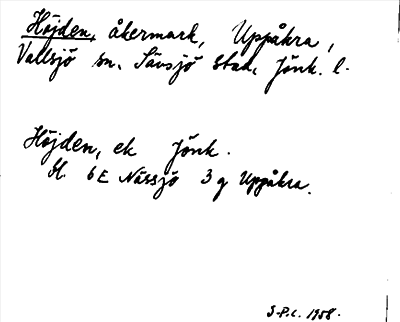 Höjden, åkermark, Uppåkra,
Vallsjö sn. Sävsjö stad, Jönk. l.
Höjden, ek Jönk.
Bl. 6E Nässjö 3 g Uppåkra.
S-P.L. 1958.